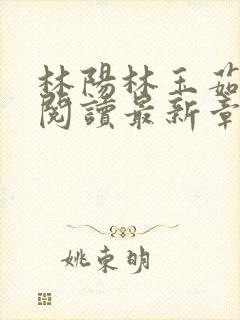 林陽林玉茹
閱讀最新章
姚東明